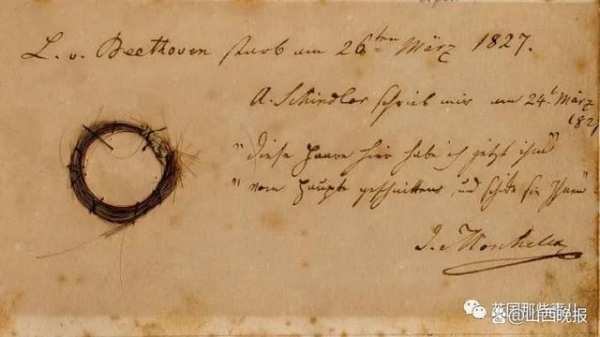 L. v. Beethoven starb am 26ten März 1827.
A. Schindler schrieb mir am 24t März
182
"diese Haare hier habe ich jetzt ihm"
"vom Haupte geschnitten, und schike sie Ihnen"
I. Moscheles
英国那些事儿
山西晚报